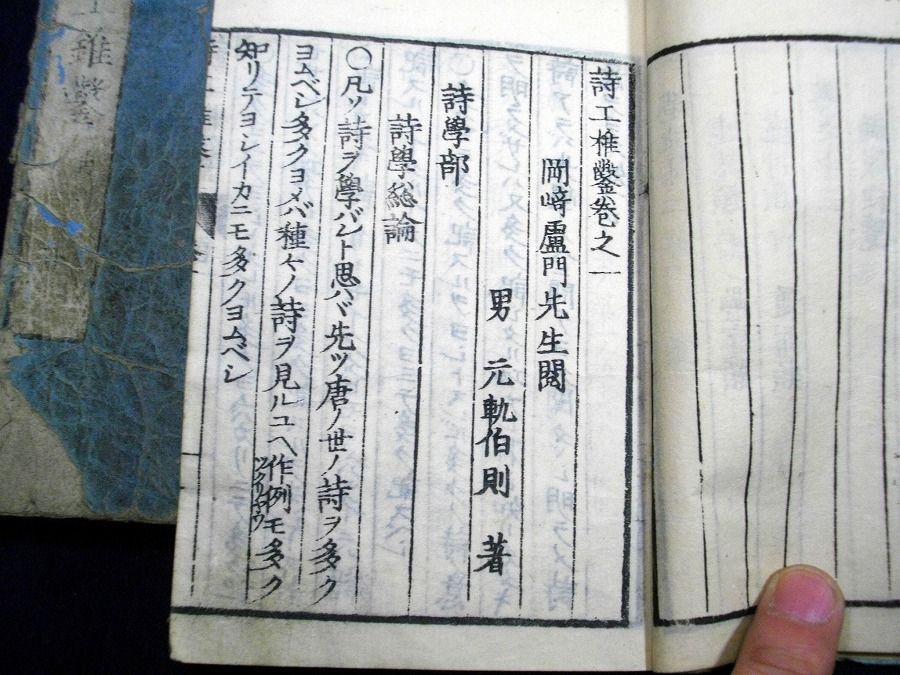 詩工椎鑿卷之一
岡﨑盧門先生閲
男 元軌伯則 著
詩學部
詩學総論
○凡ソ詩ヲ學バント思ハヾ先ツ唐ノ世ノ詩ヲ多ク
ヨムベシ多クヨメバ種々ノ詩ヲ見ルユヘ作例モ多ク
ツクリヤウ
知リテヨシイカニモ多クヨムベシ
椎鑿